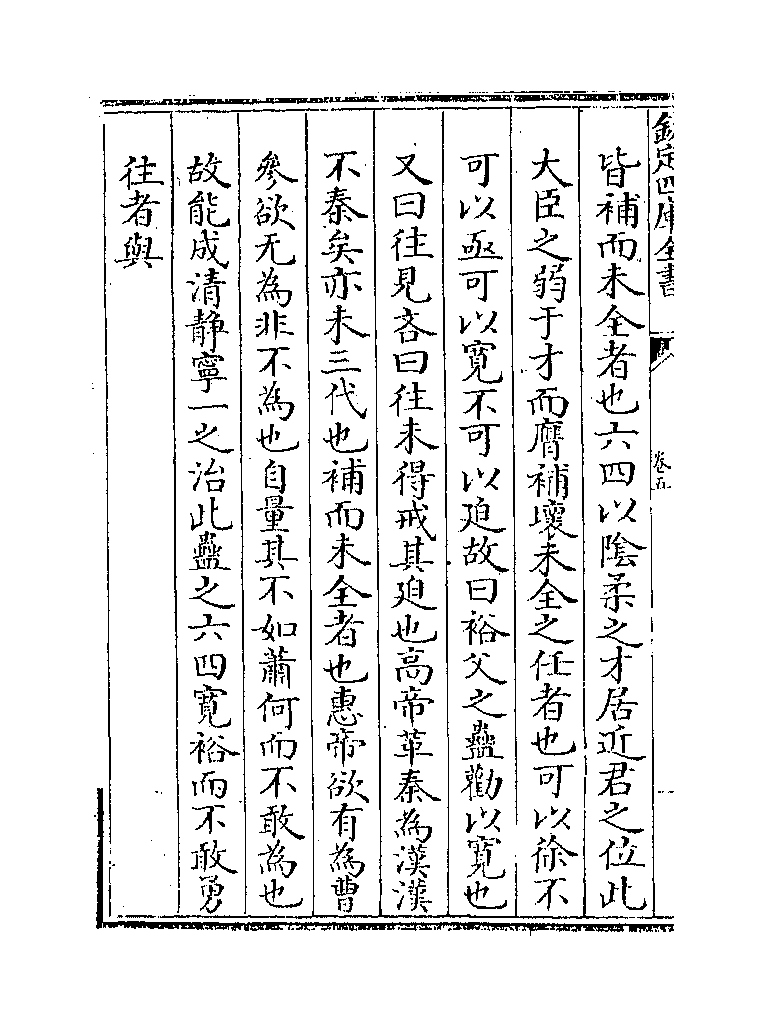 欽定四庫全書
卷五
皆補而未全者也六四以陰柔之才居近君之位此
大臣之弱于才而膺補壞未全之任者也可以徐不
可以亟可以寛不可以廹故曰裕父之蠱勸以寛也
又曰往見吝曰往未得戒其廹也高帝革秦為漢漢
不秦矣亦未三代也補而未全者也惠帝欲有為曹
參欲无為非不為也自量其不如蕭何而不敢為也
故能成清静寧一之治此蠱之六四寛裕而不敢勇
往者與